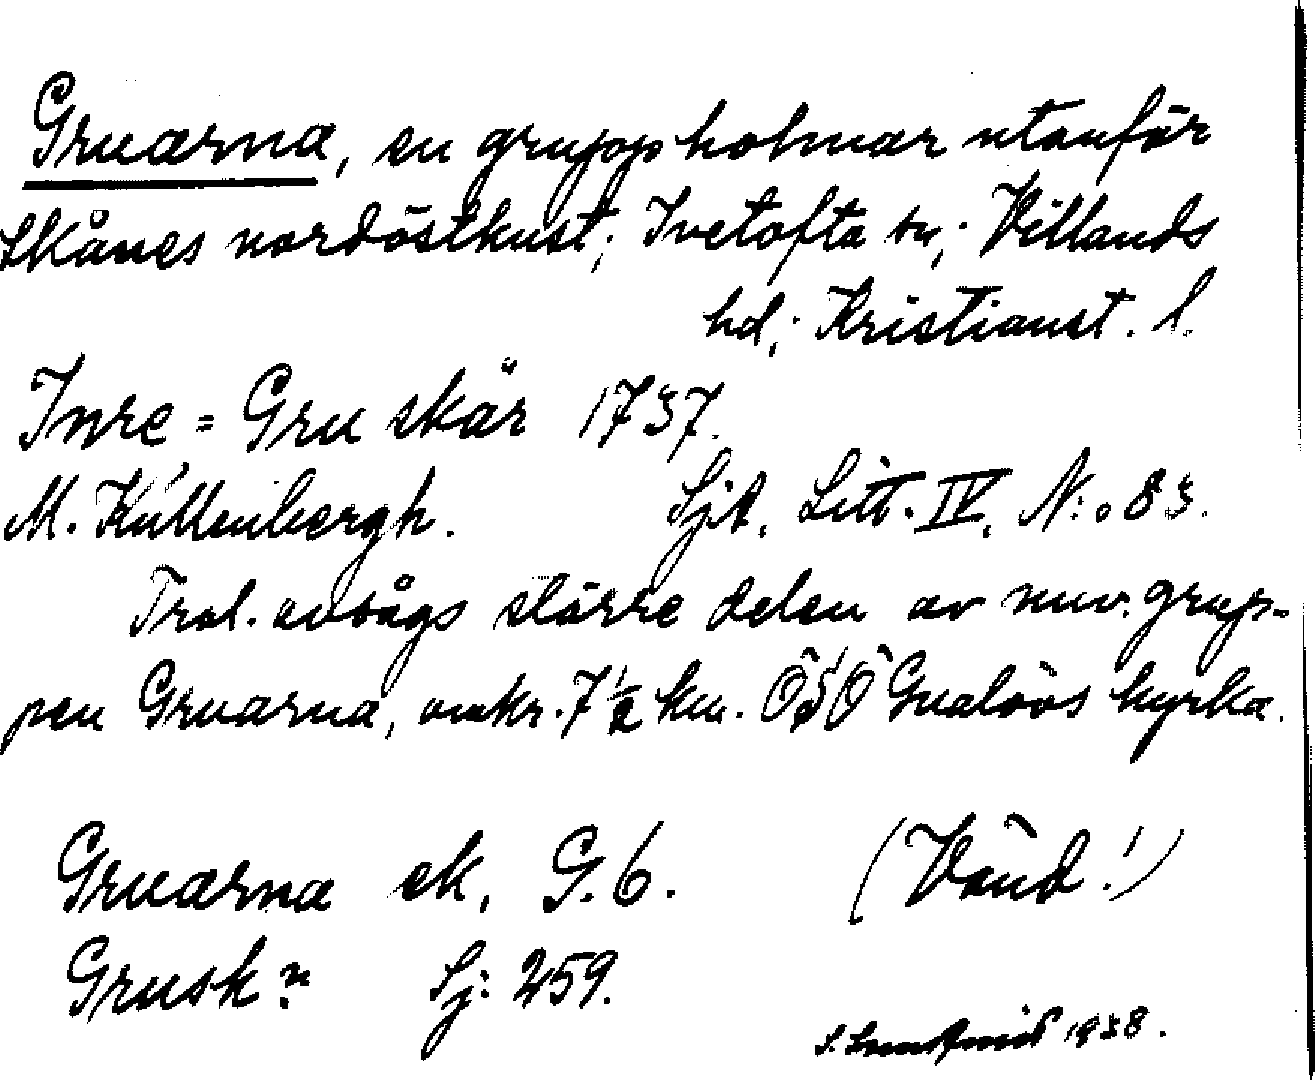 Gruarna, en grupp holmar utanför
Skånes nordöstkust; Ivetofta sn; Villands
hd; Kristianst. l.
Inre = Gru skär 1737.
M. Kullenbergh. Sjk. Litt. IV. N:o 83.
Trol. avsågs större delen av nuv. grup-
pen Gruarna, omkr. 7 1/2 km. ÖSÖ Gualövs kyrka.
Gruarna ek, G.6. (Vänd!)
Grusk:r Sj: 259.
1938.